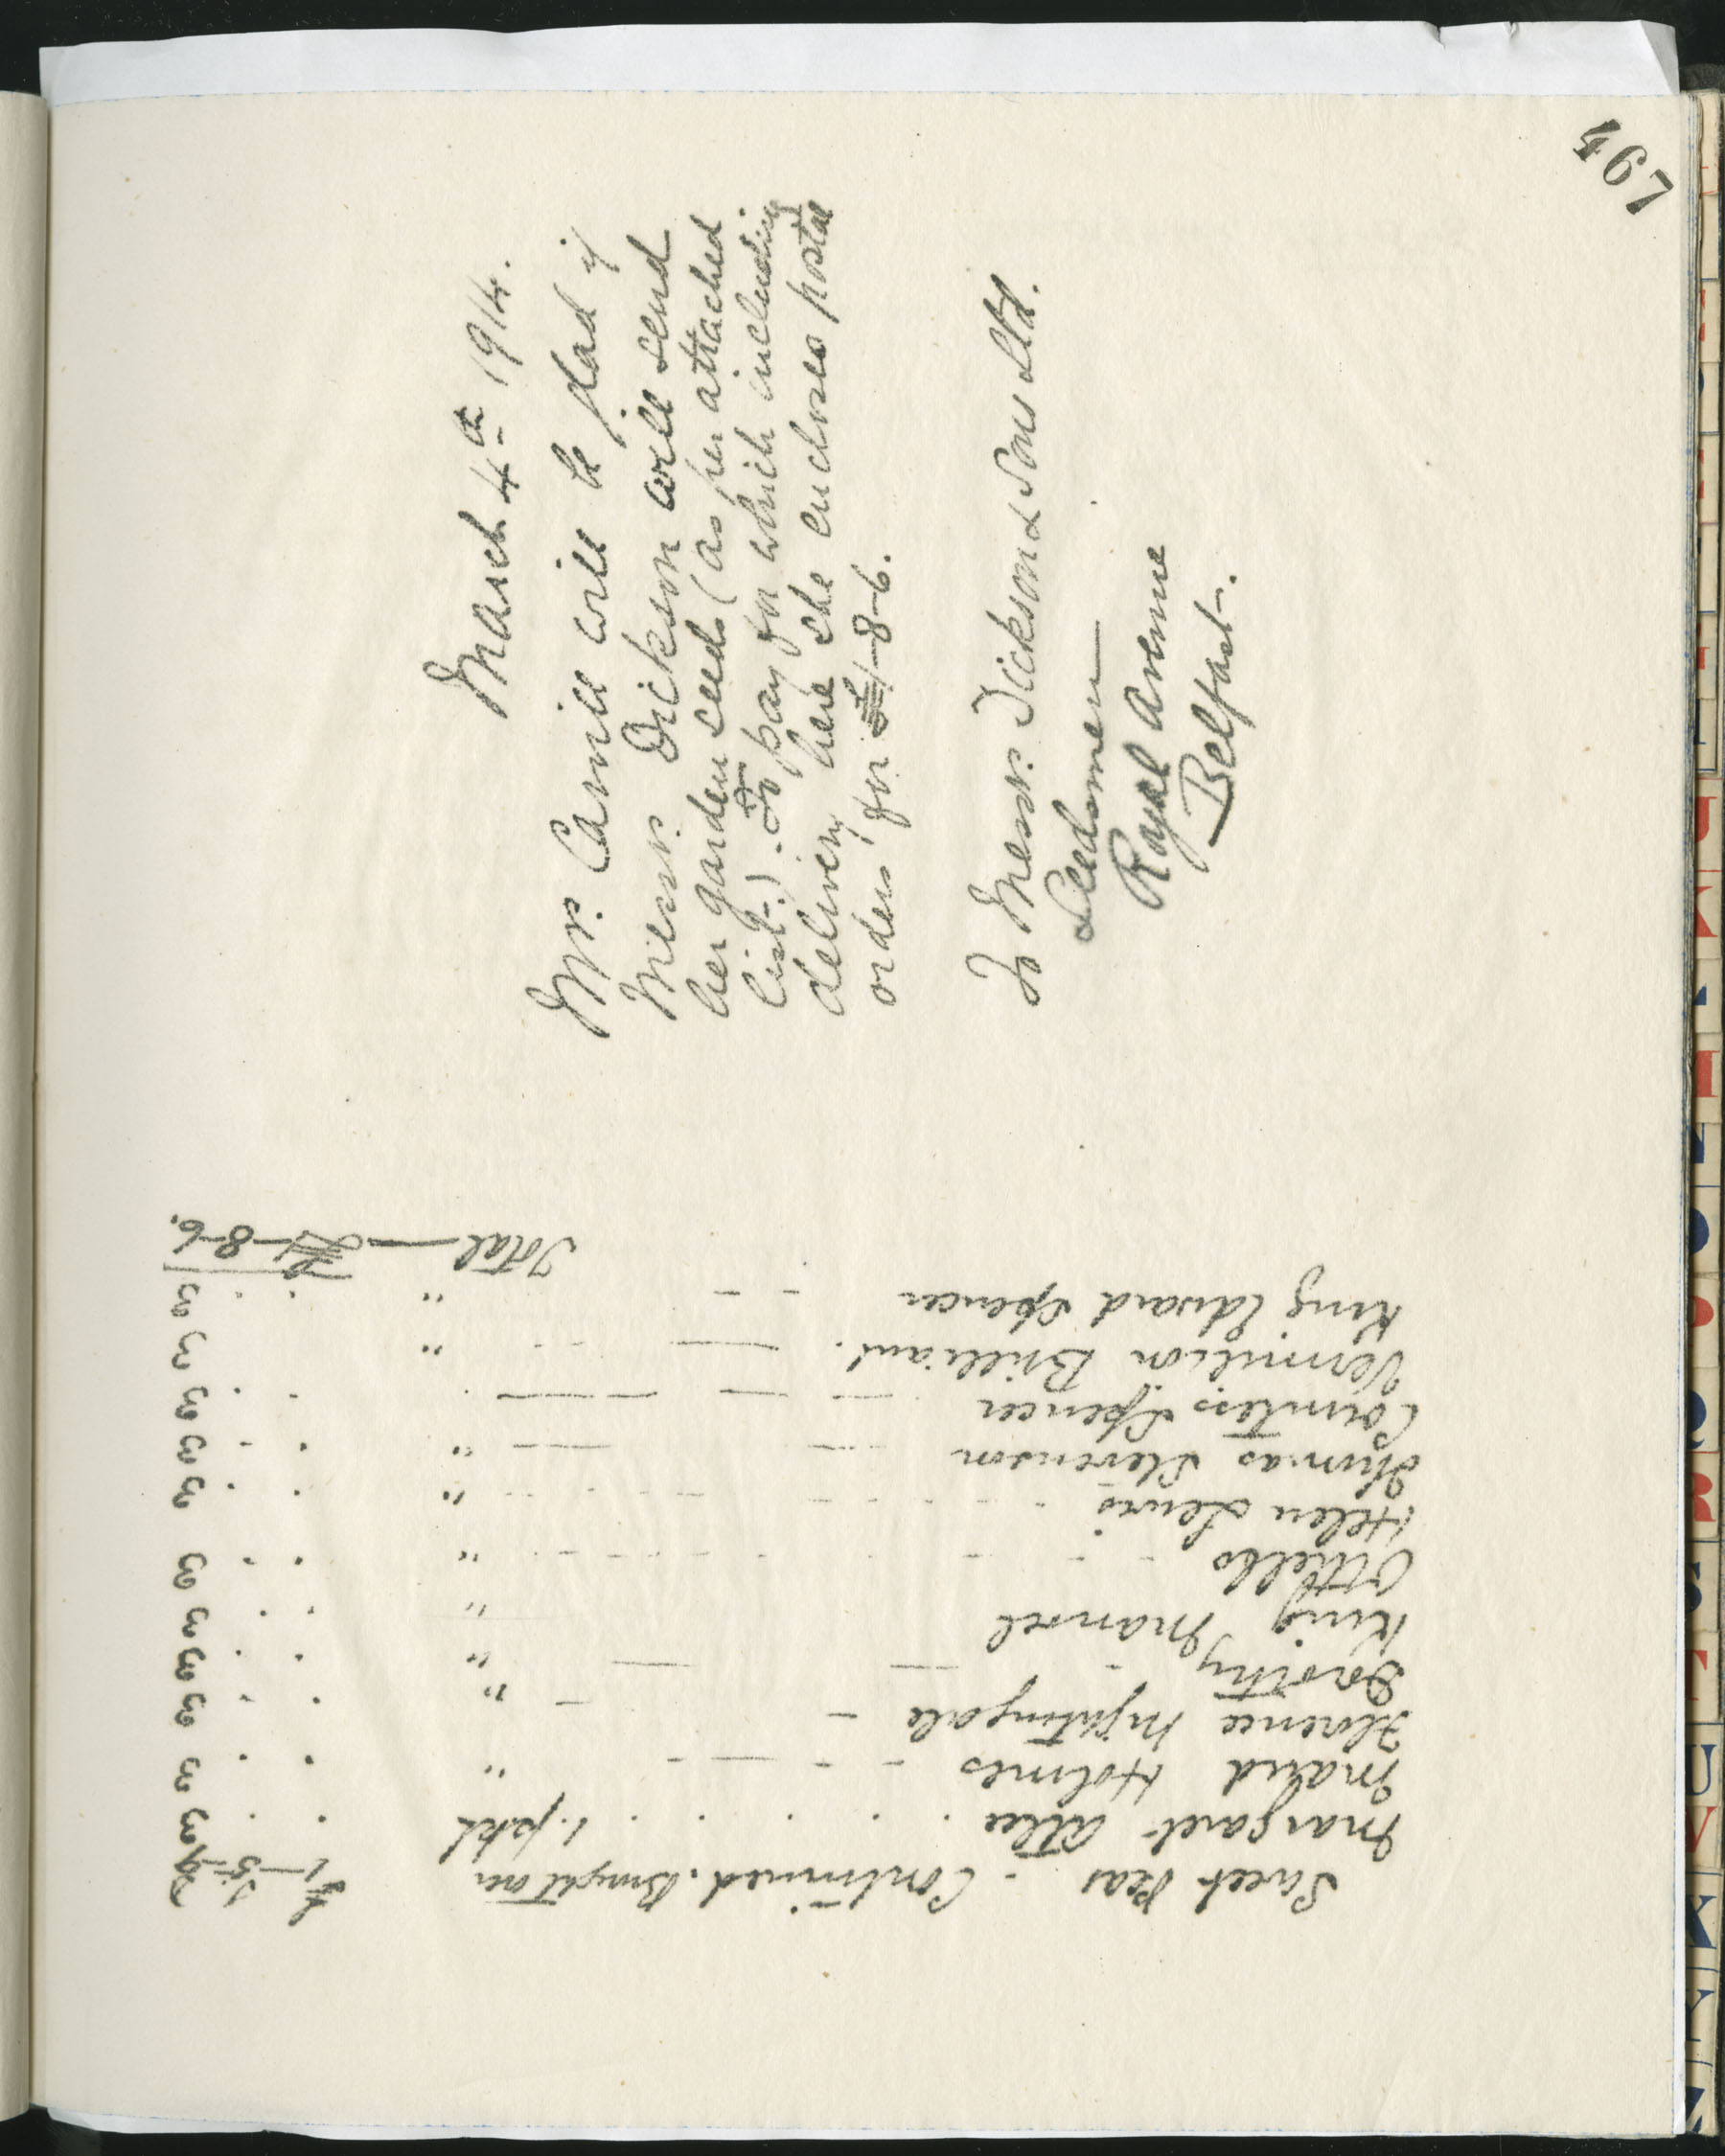 497
March 4th 1914.
Mrs. Carvill will be glad if
Messrs. Dickson will send
her garden seeds (as per attached
list.) - To pay for which including
delivery here she encloses postal
orders for £1-8-6.
To Messrs. Dickson & Sons Ltd.
Seedsmen
Royal Avenue
Belfast.
Sweet Peas - Continued. Brought over £1-5-9
Margaret Atlee . . . . . . 1. pkt . . 3
Maud Holmes - - - - - " . . 3
Florence Nightingale - - " . - 3
Dorothy - - - - " . . 3
King Manoel " . . 3
Othello - - - - - - - - " . . 3
Helen Lewis - - - - - - - " . . 3
Thomas Stevenson - - - - " . - 3
Countess Spencer - - - - - . . 3
Vermilion Brilliant. - - - " 3
King Edward Spencer - - " . . 3
Total — £1-8-6.